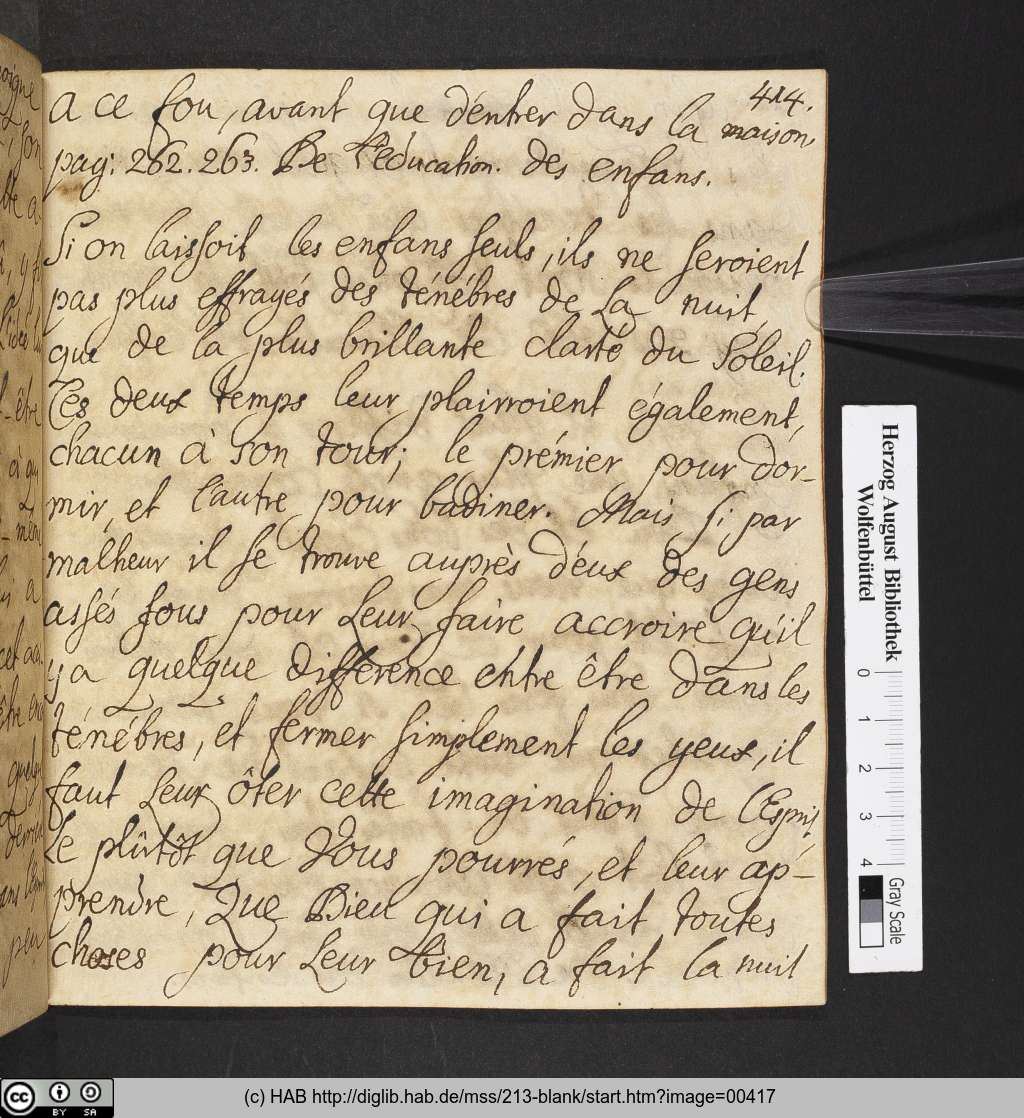 414.
a ce fou, avant que d'entrer dans la maison,
pag: 262. 263. De l'éducation. des enfans.
Si on laissoit les enfans seuls, ils ne seroient
pas plus effrayés des ténébres de La nuit,
que de la plus brillante clarté du Soleil.
Ces deux temps leur plairroient également,
chacun à son tour; le prémier pour dor-
mir, et l'autre pour badiner. Mais si par
malheur il se trouve auprès d'eux des gens
assés fous pour Leur faire accroire qu'il
y a quelque différence entre être dans les
ténébres, et fermer simplement les yeux, il
faut Leur ôter cette imagination de l'Esprit
Le plûtôt que Vous pourrés, et leur ap-
prendre, Que Dieu qui a fait toutes
choses pour Leur bien, a fait la nuit
Herzog August Bibliothek
Wolfenbüttel
0 1 2 3 4
Gray Scale
cc BY SA
(c) HAB http://diglib.hab.de/mss/213-blank/start.htm?image=00417